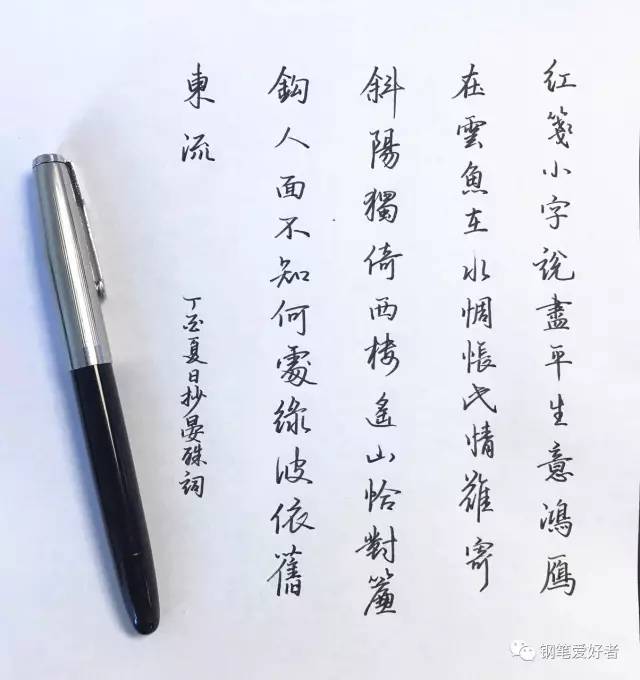 红箋小字說盡平生意鴻雁
在雲魚在水惆悵此情難寄
斜陽獨倚西樓遙山恰對簾
鈎人面不知何處綠波依舊
東流
丁酉夏日抄晏殊詞
钢笔爱好者